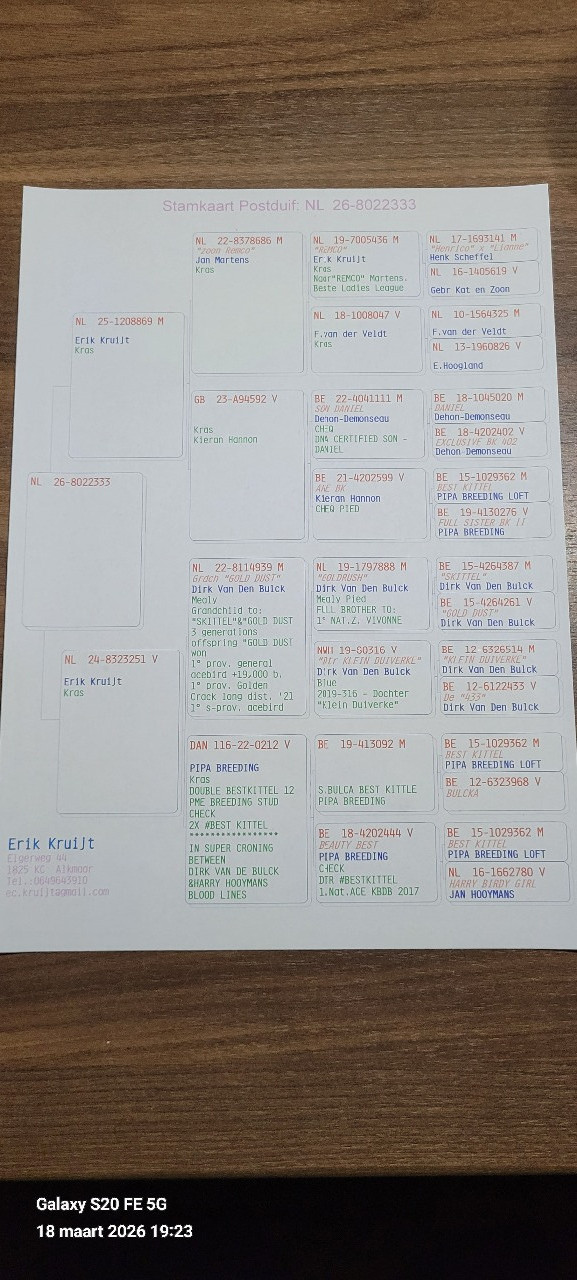 Stamkaart Postduif: NL 26-8022333
NL 26-8022333
NL 25-1208869 M
Erik Kruijt
Kras
NL 24-8323251 V
Erik Kruijt
Kras
NL 22-8378686 M
"zoon Remco"
Jan Martens
Kras
GB 23-A94592 V
Kras
Kieran Hannon
NL 22-8114939 M
Grdch "GOLD DUST"
Dirk Van Den Bulck
Mealy
Grandchild to:
"SKITTEL"&"GOLD DUST
3 generations
offspring "GOLD DUST
won
1° prov. general
acebird +19,000 b.
1° prov. Golden
Crack long dist. '21
1° s-prov. acebird
DAN 116-22-0212 V
PIPA BREEDING
Kras
DOUBLE BESTKITTEL 12
PME BREEDING STUD
CHECK
2X #BEST KITTEL
******************
IN SUPER CRONING
BETWEEN
DIRK VAN DE BULCK
&HARRY HOOYMANS
BLOOD LINES
NL 19-7005436 M
"REMCO"
Erik Kruijt
Kras
Naar"REMCO" Martens.
Beste Ladies League
NL 18-1008047 V
F.van der Veldt
Kras
BE 22-4041111 M
SON DANIEL
Dehon-Demonseau
CHEQ
DNA CERTIFIED SON -
DANIEL
BE 21-4202599 V
BK
Kieran Hannon
CHEQ PIED
NL 19-1797888 M
"GOLDRUSH"
Dirk Van Den Bulck
Mealy Pied
FLLL BROTHER TO:
1° NAT.Z. VIVONNE
19-S0316 V
"Dtr KLEIN DUIVERKE"
Dirk Van Den Bulck
Blue
2019-316 - Dochter
"Klein Duiverke"
BE 19-413092 M
S.BULCA BEST KITTLE
PIPA BREEDING
BE 18-4202444 V
BEAUTY BEST
PIPA BREEDING
CHECK
DTR #BESTKITTEL
1.Nat.ACE KBDB 2017
NL 17-1693141 M
"Henrico" x "Limone"
Henk Scheffel
NL 16-1405619 V
Gebr Kat en Zoon
NL 10-1564325 M
F.van der Veldt
NL 13-1960826 V
E.Hoogland
BE 18-1045020 M
DANIEL
Dehon-Demonseau
BE 18-4202402 V
EXCLUSIVE BK 402
Dehon Demonseau
BE 15-1029362 M
BEST KITTEL
PIPA BREEDING LOFT
BE 19-4130276 V
FULL SISTER BK II
PIPA BREEDING
BE 15-4264387 M
"SKITTEL"
Dirk Van Den Bulck
BE 15-4264261 V
"GOLD DUST"
Dirk Van Den Bulck
BE 12 6326514 M
"KLEIN DUIVERKE"
Dirk Van Den Bulck
BE 12-6122433 V
De "433"
Dirk Van Den Bulck
BE 15-1029362 M
BEST KITTEL
PIPA BREEDING LOFT
BE 12-6323968 V
BULCKA
BE 15-1029362 M
BEST KITTEL
PIPA BREEDING LOFT
NL 16-1662780 V
HARRY BIRDY GIRL
JAN HOOYMANS
Erik Kruijt
Eigerweg 44
1825 KC Alkmaar
Tel.:0649643910
ec.kruijt@gmail.com
Galaxy S20 FE 5G
18 maart 2026 19:23